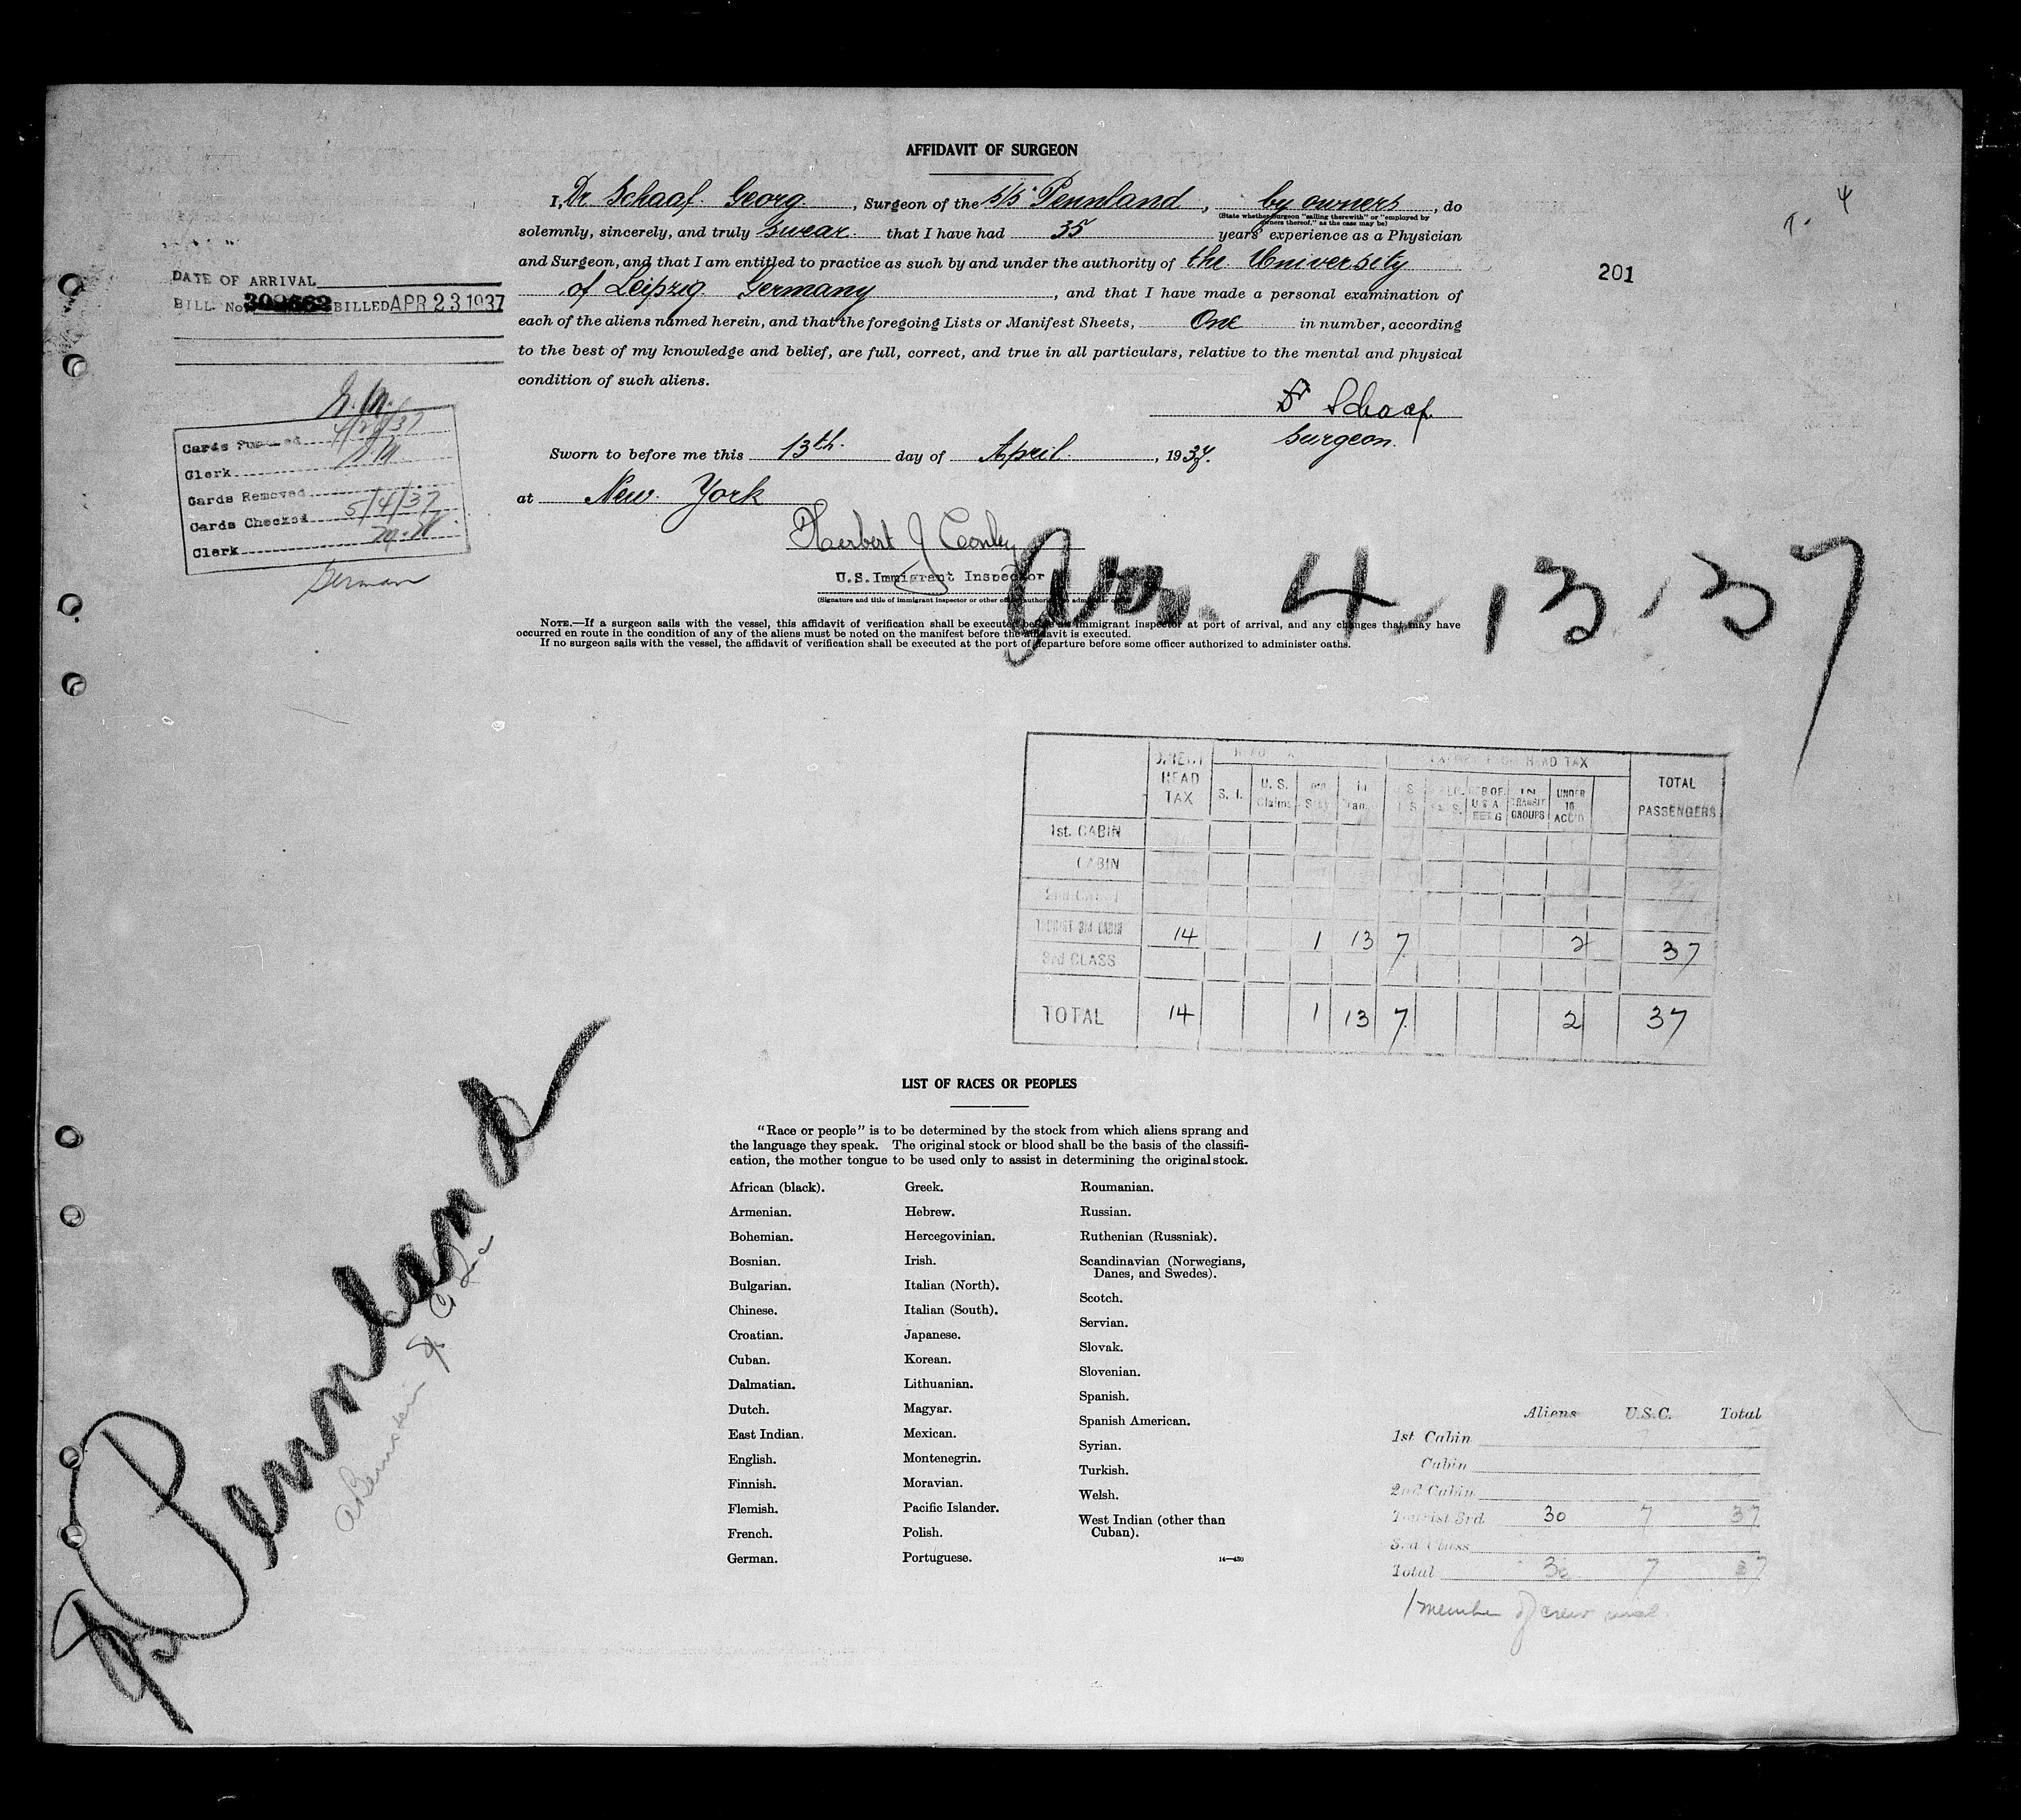 AFFIDAVIT OF SURGEON
I, Dr Schaaf Georg, Surgeon of the S/S "Pennland, by owners, do
(State whether Surgeon "sailing therewith" or "employed by owners thereof," as the case may be)
solemnly, sincerely, and truly swear that I have had 35 years' experience as a Physician
and Surgeon, and that I am entitled to practice as such by and under the authority of the University
of Leipzig Germany, and that I have made a personal examination of
each of the aliens named herein, and that the foregoing Lists or Manifest Sheets, One in number, according
to the best of my knowledge and belief, are full, correct, and true in all particulars, relative to the mental and physical
condition of such aliens.
Dr Schaaf.
Surgeon.
Sworn to before me this 13th. day of April, 1937.
at New York
Herbert J Conley
U.S. Immigrant Inspector
(Signature and title of immigrant inspector or other officer authorized to administer oaths)
NOTE.—If a surgeon sails with the vessel, this affidavit of verification shall be executed before an immigrant inspector at port of arrival, and any changes that may have
occurred en route in the condition of any of the aliens must be noted on the manifest before the affidavit is executed.
If no surgeon sails with the vessel, the affidavit of verification shall be executed at the port of departure before some officer authorized to administer oaths.
4
201
DATE OF ARRIVAL
BILL. No. BILLED APR 23 1937
Cards
Clerk
Cards Removed
Cards Checked 5/4/37
Clerk
German
Arr. 4-13-37
DIRECT HEAD TAX
S. I.
U. S. Claims
HEAD TAX
IN TRANSIT GROUPS
UNDER 16 ACC'D
TOTAL PASSENGERS
1st. CABIN
CABIN
2nd CABIN
TOURIST 3rd CABIN 14 1 13 7 2 37
3rd CLASS
TOTAL 14 1 13 7 2 37
LIST OF RACES OR PEOPLES
"Race or people" is to be determined by the stock from which aliens sprang and
the language they speak. The original stock or blood shall be the basis of the classifi-
cation, the mother tongue to be used only to assist in determining the original stock.
African (black).
Armenian.
Bohemian.
Bosnian.
Bulgarian.
Chinese.
Croatian.
Cuban.
Dalmatian.
Dutch.
East Indian.
English.
Finnish.
Flemish.
French.
German.
Greek.
Hebrew.
Hercegovinian.
Irish.
Italian (North).
Italian (South).
Japanese.
Korean.
Lithuanian.
Magyar.
Mexican.
Montenegrin.
Moravian.
Pacific Islander.
Polish.
Portuguese.
Roumanian.
Russian.
Ruthenian (Russniak).
Scandinavian (Norwegians,
Danes, and Swedes).
Scotch.
Servian.
Slovak.
Slovenian.
Spanish.
Spanish American.
Syrian.
Turkish.
Welsh.
West Indian (other than
Cuban).
14—430
Pennland
Bernstein
Aliens U.S.C. Total
1st Cabin
Cabin
2nd Cabin
Tourist 3rd 30 7 37
3rd Class
Total 30 7 37
1 member of crew